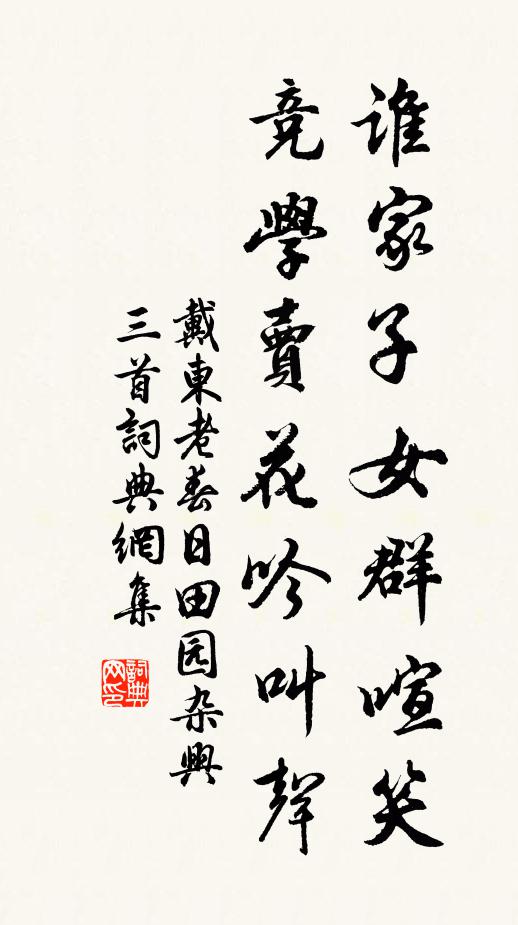 谁家子女群喧笑
竞學賣花吟叫聲
戴東老春日田园杂興
三首詞典網集
詞典网印